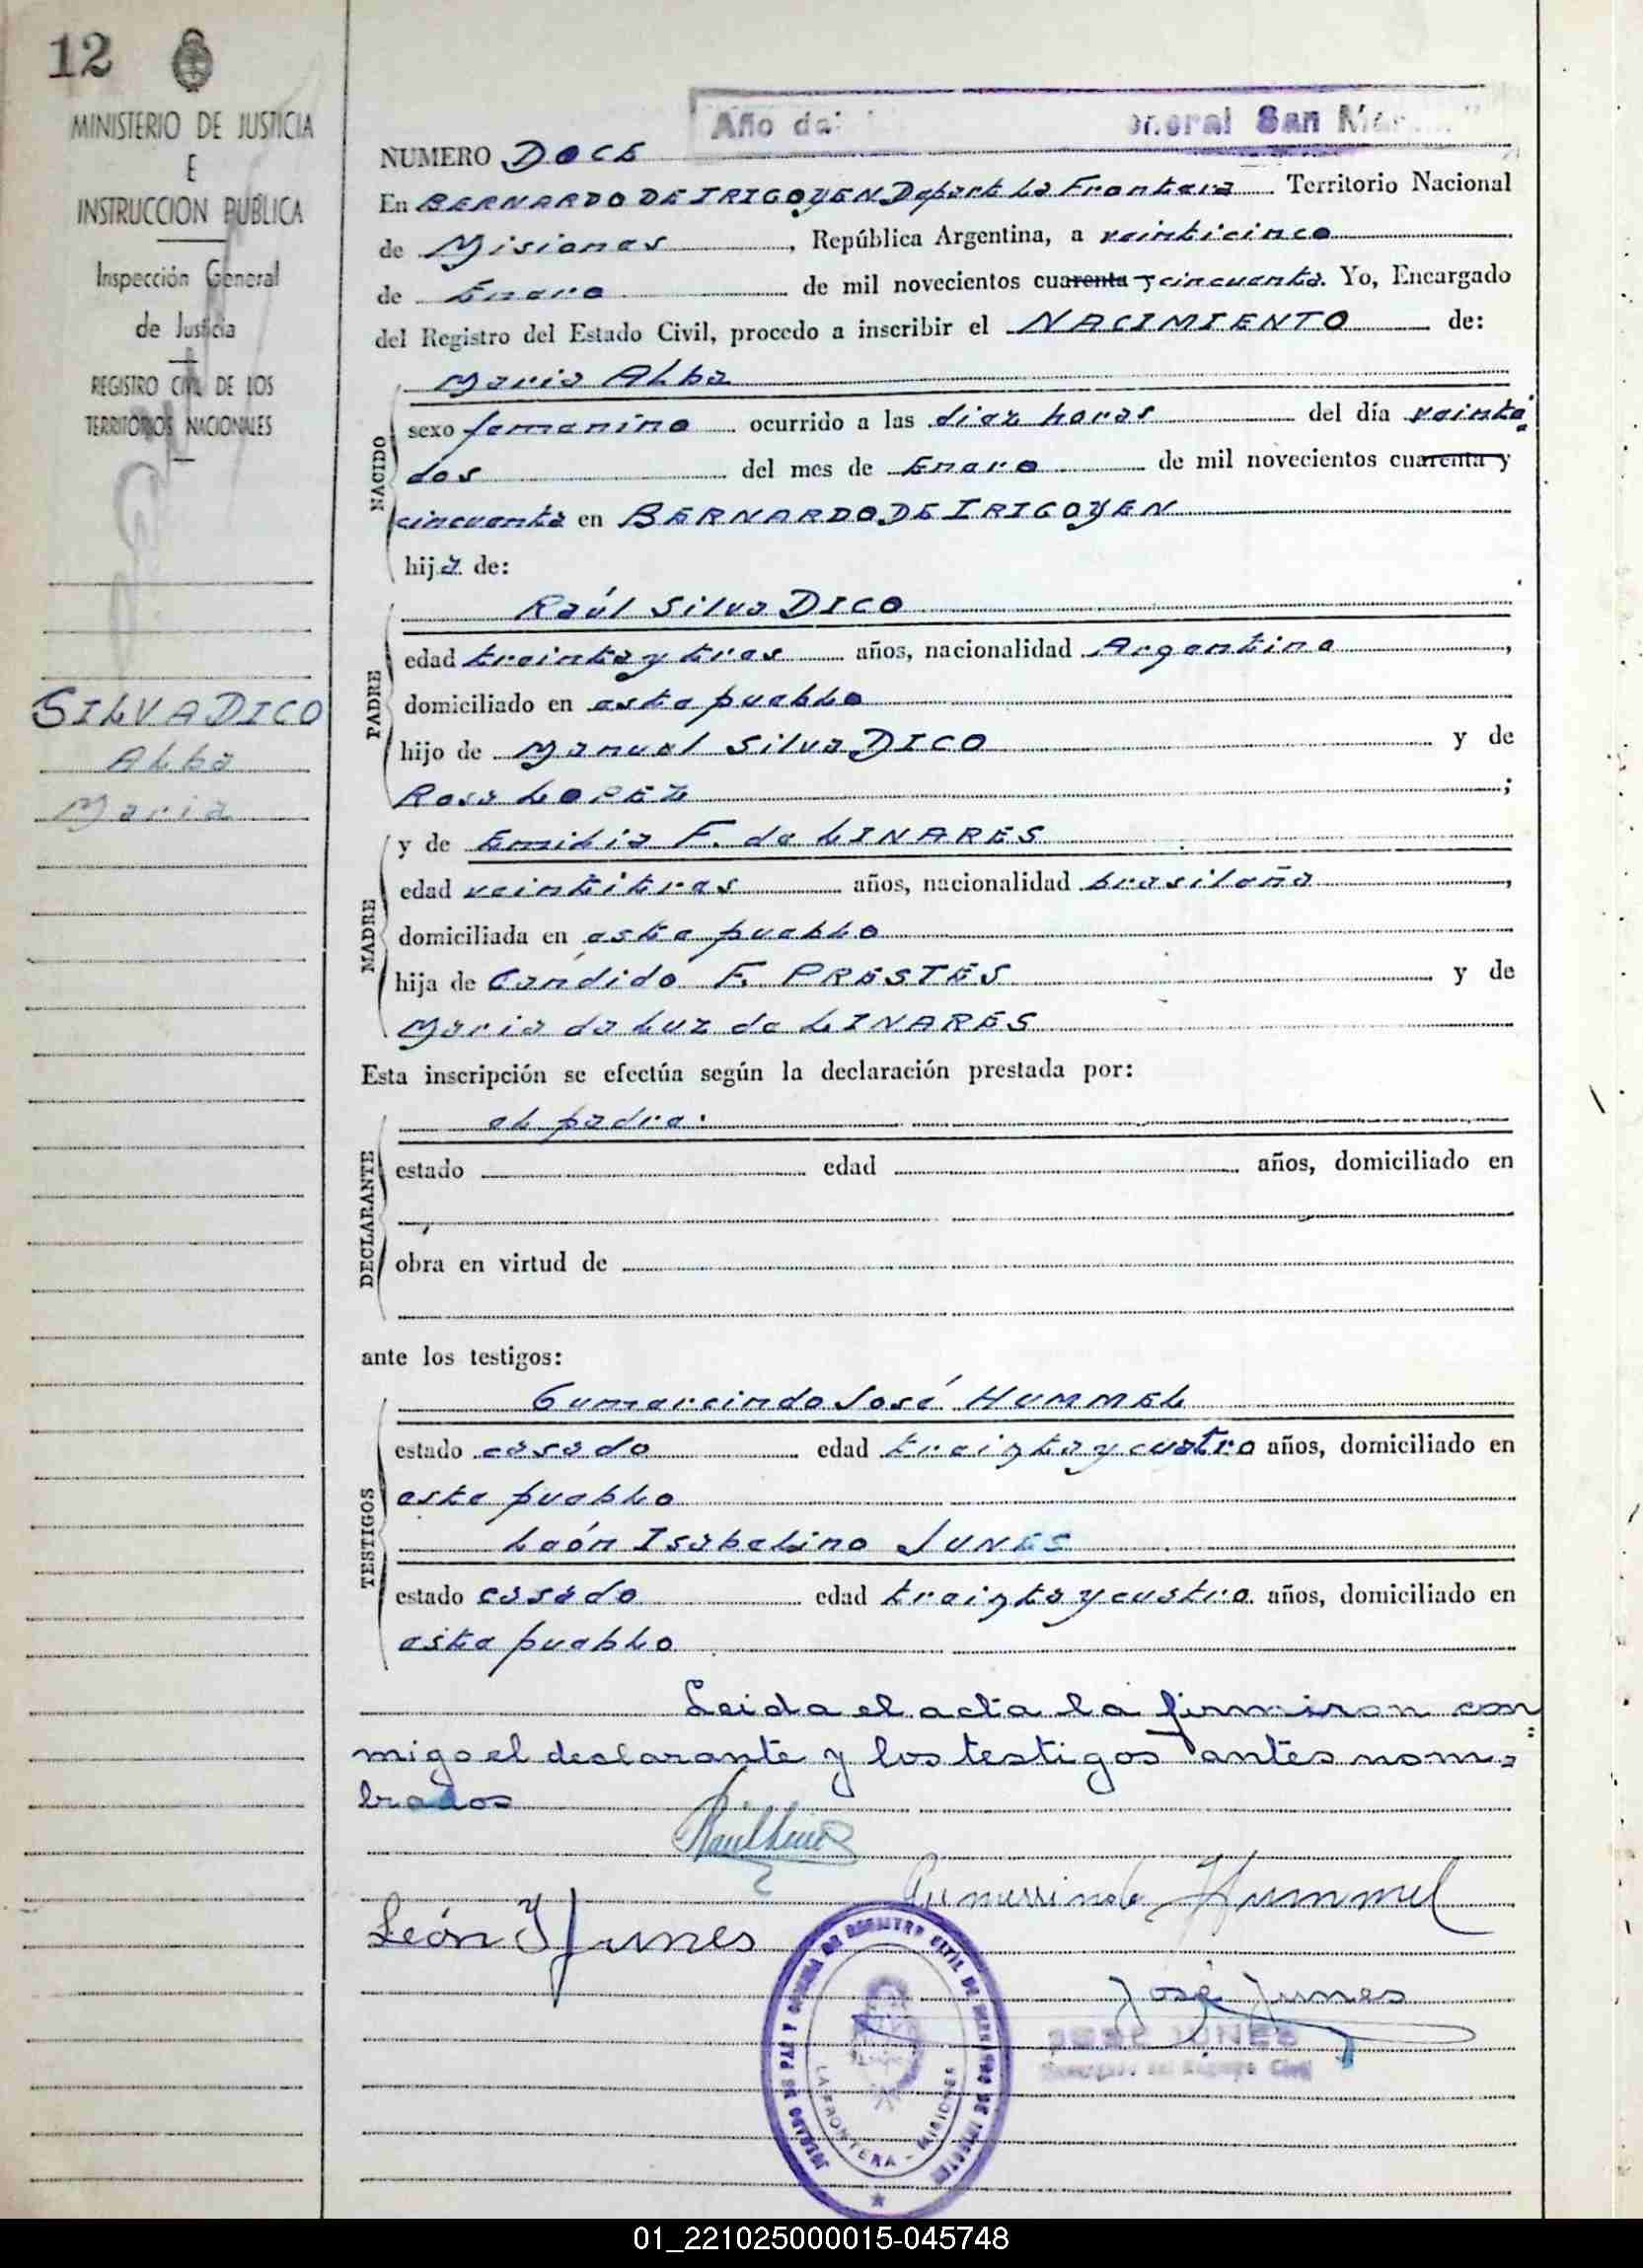 12
MINISTERIO DE JUSTICIA
E
INSTRUCCION PUBLICA
Inspección General
de Justicia
REGISTRO CIVIL DE LOS
TERRITORIOS NACIONALES
SILVA DICO
Alba
Maria
Año del General San Mar
NUMERO DOCE
En BERNARDO DE IRIGOYEN Depart La Frontera Territorio Nacional
de Misiones, República Argentina, a veinticinco
de Enero de mil novecientos cuarenta y cincuenta. Yo, Encargado
del Registro del Estado Civil, procedo a inscribir el NACIMIENTO de:
NACIDO
Maria Alba
sexo femenino ocurrido a las diez horas del día veinte
dos del mes de Enero de mil novecientos cuarenta y
cincuenta en BERNARDO DE IRIGOYEN
hija de:
PADRE
Raúl Silva DICO
edad treinta y tres años, nacionalidad Argentino,
domiciliado en este pueblo
hijo de Manuel Silva DICO y de
Rosa LOPEZ;
MADRE
y de Emilia F. de LINARES
edad veintitres años, nacionalidad brasileña,
domiciliada en este pueblo
hija de Cándido F. PRESTES y de
Maria da Luz de LINARES
Esta inscripción se efectúa según la declaración prestada por:
DECLARANTE
el padre.
estado edad años, domiciliado en
obra en virtud de
ante los testigos:
TESTIGOS
Gumercindo José HUMMEL
estado casado edad treinta y cuatro años, domiciliado en
este pueblo
León Isabelino JUNES
estado casado edad treinta y cuatro años, domiciliado en
este pueblo
Leida el acta la firmaron con
migo el declarante y los testigos antes nom=
brados
Gumersindo Hummel
León Y Junes
José Junes
JOSE JUNES
Encargado del Registro Civil
JUZGADO DE PAZ Y OFICINA DE REGISTRO CIVIL DE BERNARDO DE IRIGOYEN
LA FRONTERA - MISIONES
01_221025000015-045748